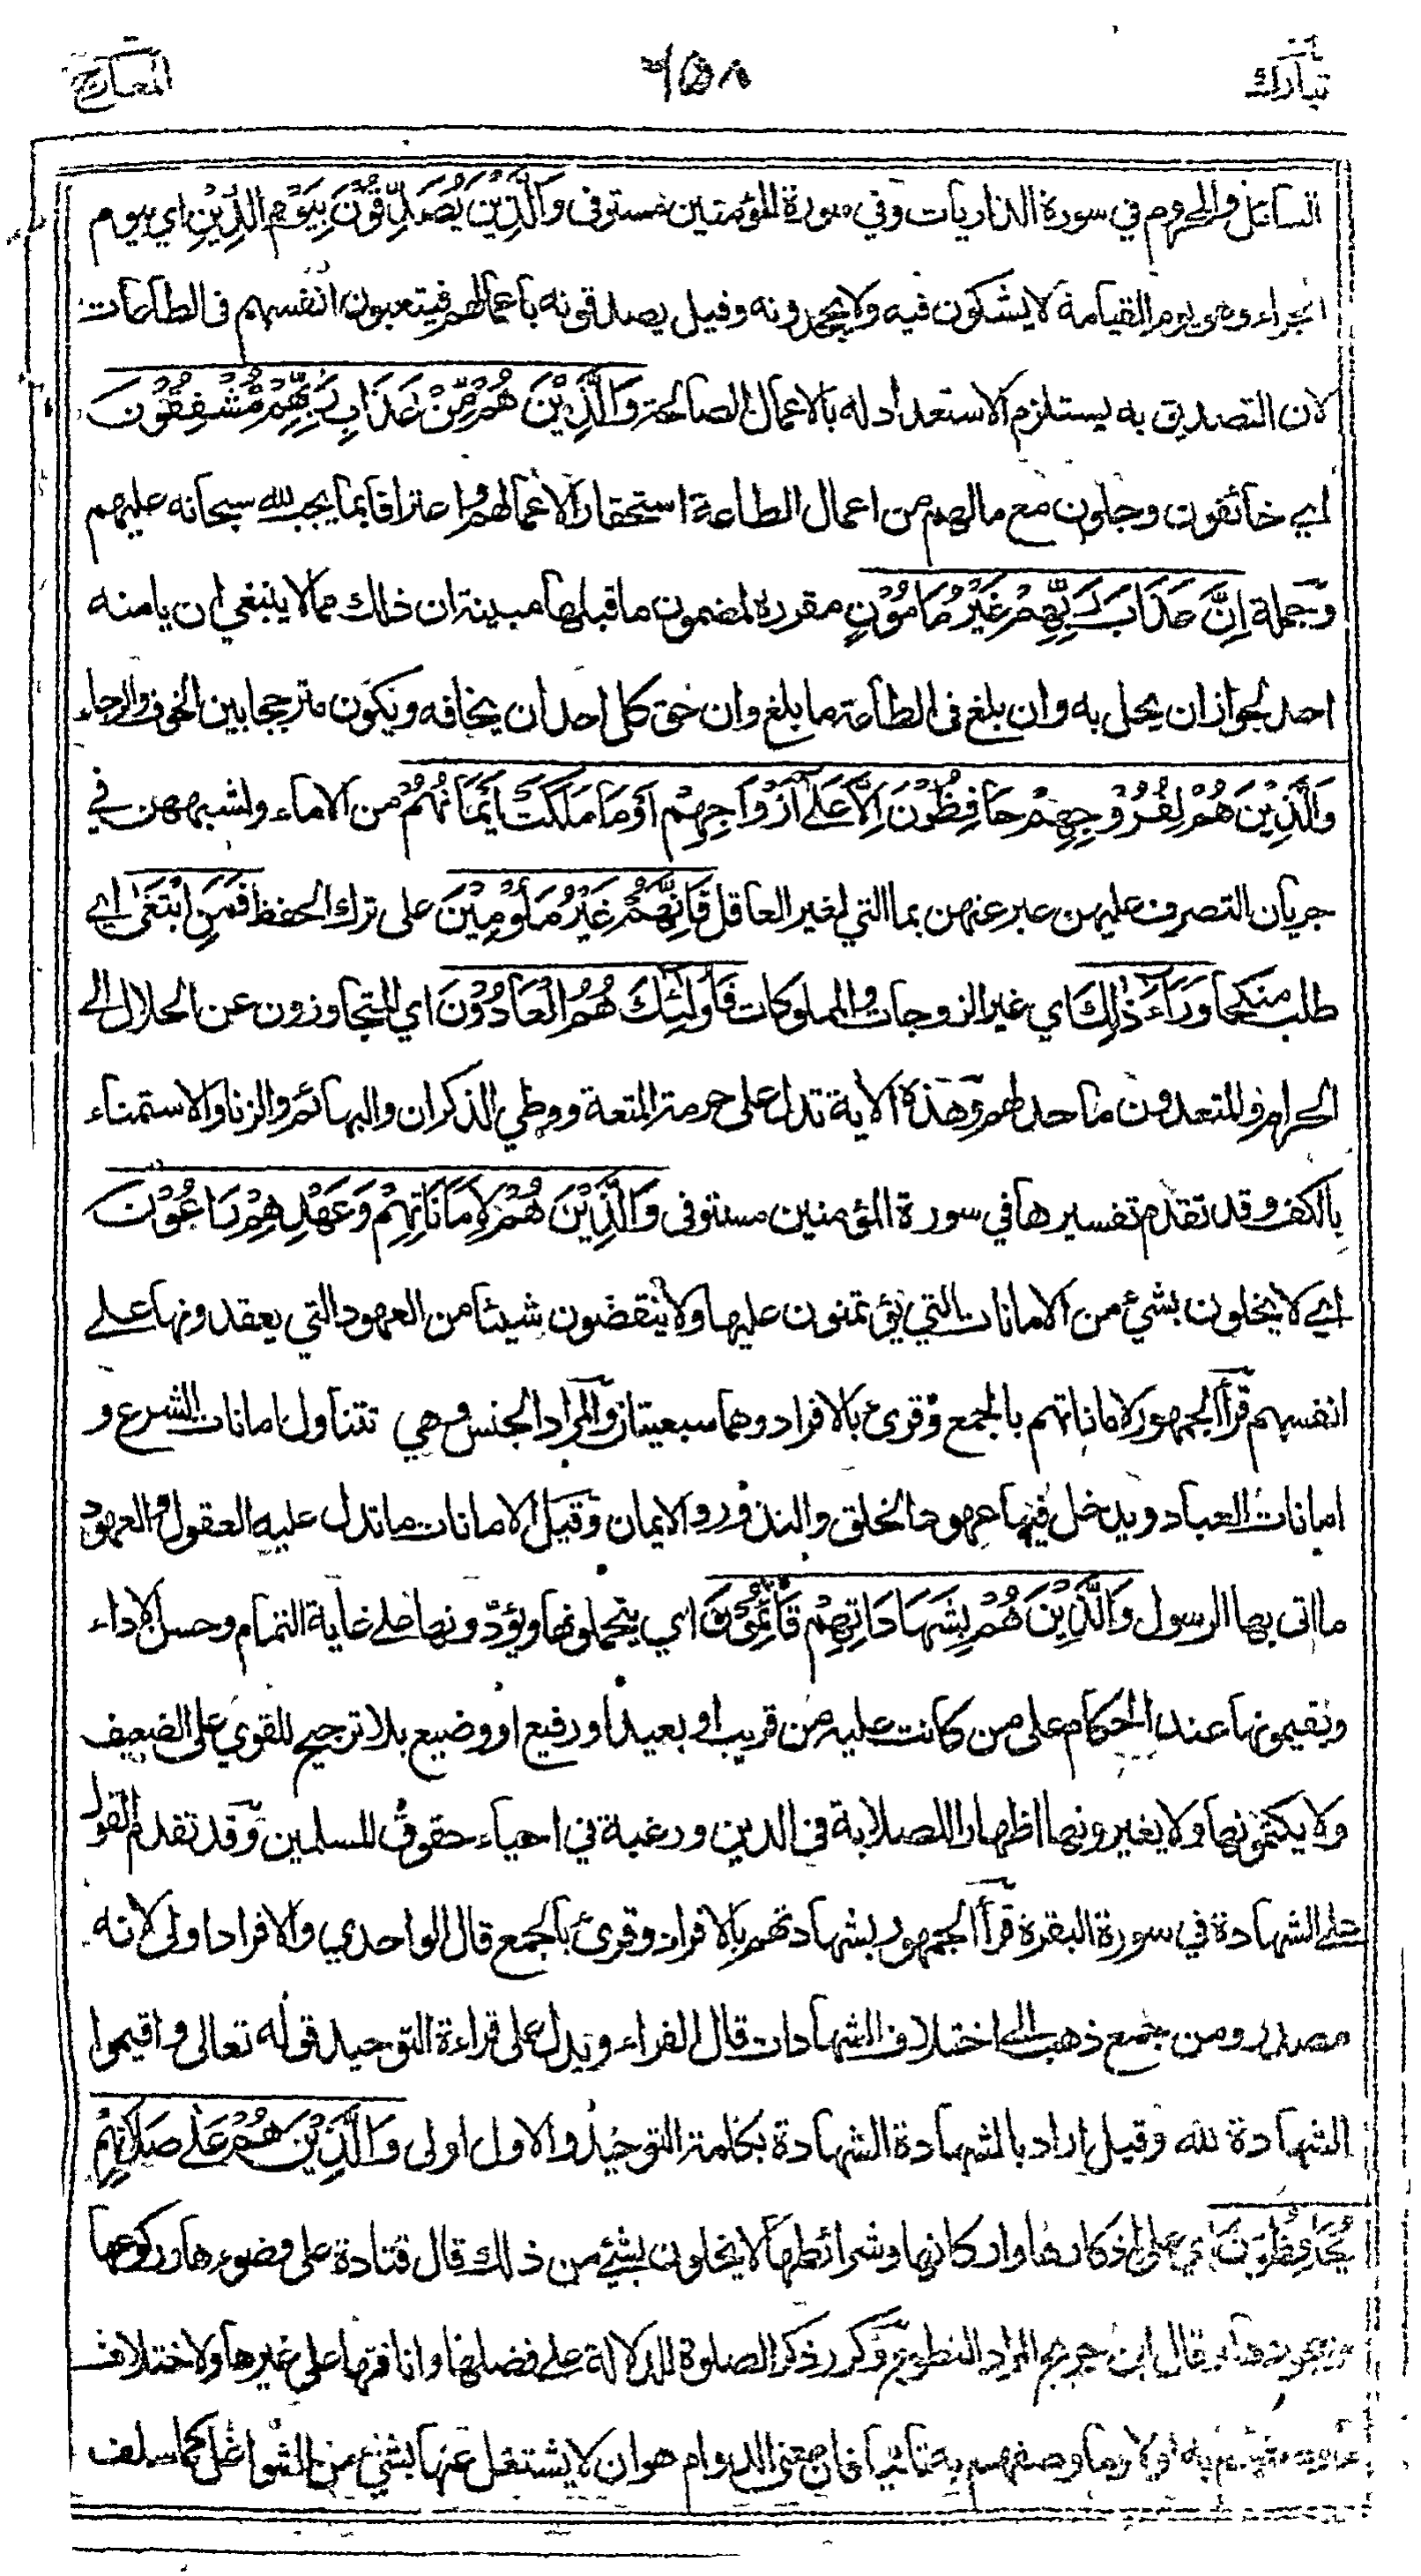 تبارك ٢٥٨ المعارج
السائل والمحروم في سورة الذاريات وفي سورة المؤمنين مستوفى وَالَّذِينَ يُصَدِّقُونَ بِيَوْمِ الدِّينِ اي بيوم
الجزاء وهو يوم القيامة لا يشكون فيه ولا يجحدونه وقيل يصدقونه باعمالهم فيتعبون انفسهم فى الطاعات
لان التصديق به يستلزم الاستعداد له بالاعمال الصالحة وَالَّذِيْنَ هُمْ مِّنْ عَذَابِ رَبِّهِمْ مُّشْفِقُوْنَ
اي خائفون وجلون مع مالهم من اعمال الطاعة استحقارا لاعمالهم واعترافا بما يجب لله سبحانه عليهم
وجملة اِنَّ عَذَابَ رَبِّهِمْ غَيْرُ مَأْمُوْنٍ مقررة لمضمون ما قبلها مبينة ان ذلك مما لا ينبغي ان يامنه
احد لجواز ان يحل به وان بلغ فى الطاعة ما بلغ وان حق كل احد ان يخافه ويكون مترجحا بين الخوف والرجاء
وَالَّذِيْنَ هُمْ لِفُرُوْجِهِمْ حَافِظُوْنَ اِلَّا عَلٰى اَزْوَاجِهِمْ اَوْ مَا مَلَكَتْ اَيْمَانُهُمْ من الاماء ولشبههن في
جريان التصرف عليهن عبر عنهن بما التي لغير العاقل فَاِنَّهُمْ غَيْرُ مَلُوْمِيْنَ على ترك الحفظ فَمَنِ ابْتَغٰى اي
طلب منكحا وَرَاءَ ذٰلِكَ اي غير الزوجات والمملوكات فَاُولٰئِكَ هُمُ الْعَادُوْنَ اي المتجاوزون عن الحلال الى
الحرام والمتعدون ما حد لهم وهذه الاية تدل على حرمة المتعة ووطي الذكران والبهائم والزنا والاستمناء
بالكف وقد تقدم تفسيرها في سورة المؤمنين مستوفى وَالَّذِيْنَ هُمْ لِاَمَانَاتِهِمْ وَعَهْدِهِمْ رَاعُوْنَ
اي لا يخلون بشئ من الامانات التي يؤتمنون عليها ولا ينقضون شيئا من العهود التي يعقدونها على
انفسهم قرأ الجمهور لاماناتهم بالجمع وقرئ بالافراد وهما سبعيتان والمراد الجنس وهي تتناول امانات الشرع و
امانات العباد ويدخل فيها عهود الخلق والنذور والايمان وقيل الامانات ما تدل عليه العقول والعهود
ما اتى بها الرسول وَالَّذِيْنَ هُمْ بِشَهَادَاتِهِمْ قَائِمُوْنَ اي يتحملونها ويؤدونها على غاية التمام وحسن الاداء
ويقيمونها عند الحكام على من كانت عليه من قريب او بعيد او رفيع او وضيع بلا ترجيح للقوي على الضعيف
ولا يكتمونها ولا يغيرونها اظهارا للصلابة فى الدين ورغبة في احياء حقوق المسلمين وقد تقدم القول
على الشهادة في سورة البقرة قرأ الجمهور بشهادتهم بالافراد وقرئ بالجمع قال الواحدي والافراد اولى لانه
مصدر ومن جمع ذهب الى اختلاف الشهادات قال الفراء ويدل على قراءة التوحيد قوله تعالى واقيموا
الشهادة لله وقيل اراد بالشهادة الشهادة بكلمة التوحيد والاول اولى وَالَّذِيْنَ هُمْ عَلٰى صَلَاتِهِمْ
يُحَافِظُوْنَ اي على اذكارها واركانها وشرائطها لا يخلون بشئ من ذلك قال قتادة على وضوءها وركوعها
وسجودها وقال ابن جريج المراد التطوع وكرر ذكر الصلوة للدلالة على فضلها وانافتها على غيرها ولاختلاف
ما وصفهم به اولا وما وصفهم به ثانيا فان معنى الدوام هو ان لا يشتغل عنها بشئ من الشواغل كما سلف